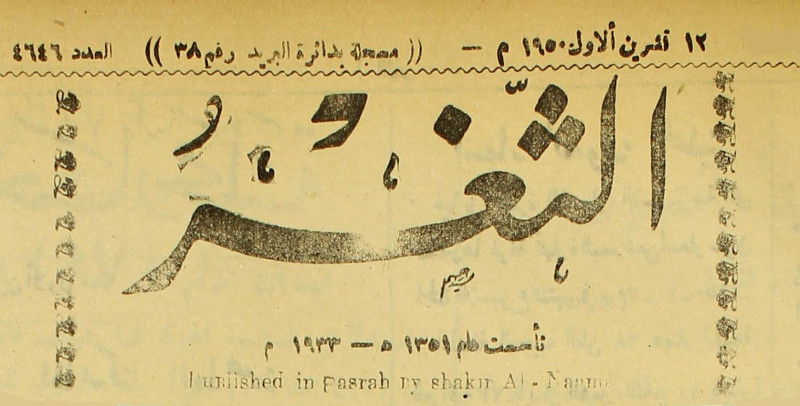 ١٢ تشرين ألاول ١٩٥٠ م — (( مسجلة بدائرة البريد رقم ٣٨ )) العدد ٤٦٤٦
الثَّغْرُ
تأسست عام ١٣٥١ ه — ١٩٣٣ م
Published in Basrah by shakir Al-